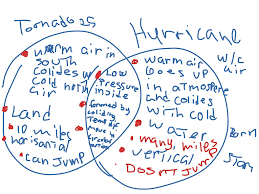 Tornado
Hurricane
warm air in
south
colides w
cold north
air
Land
10 miles
horisantal
can Jump
Low
Pressure
inside
formed by
coliding
move
w/c
air
warm air
Goes up
in, atmosfere
and colides
with cold
water
many, miles
vertical
Dosnt Jump
Born